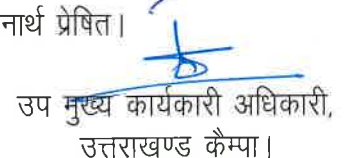 नार्थ प्रेषित।
उप मुख्य कार्यकारी अधिकारी,
उत्तराखण्ड कैम्पा।